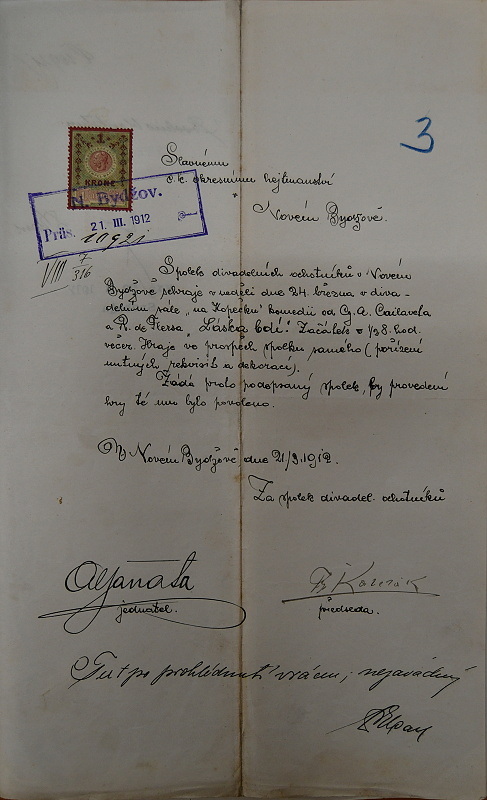 3
1
KRONE
Slavnému
c. k. okresnímu hejtmanství
v
Novém Bydžově.
N. Bydžov.
Präs. 21. III. 1912
10921
VIII 7
316
Spolek divadelních ochotníků v Novém
Bydžově sehraje v neděli dne 24. března v diva-
delním sále „na Kopečku" komedii od G. A. Cailaveta
a R. de Flersa „Láska bdí". Začátek o ½8. hod.
večer. Hraje ve prospěch spolku samého (pořízení
nutných rekvisit a dekorací).
Žádá proto podepsaný spolek, by provedení
hry té mu bylo povoleno.
V Novém Bydžově, dne 21/3. 1912.
Za spolek divadel. ochotníků
jednatel.
předseda.
Text po prohlédnutí vrácen; nezávadný